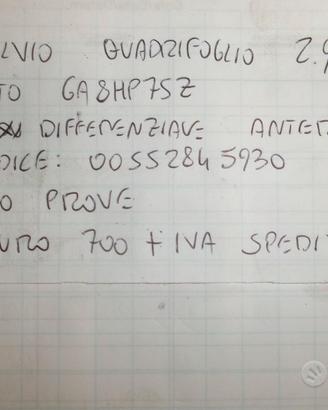 LVIO QUADRIFOGLIO 2.9
TO GA8HP75Z
DIFFERENZIALE ANTER
DICE: 00552845930
O PROVE
URO 700 + IVA SPEDIT